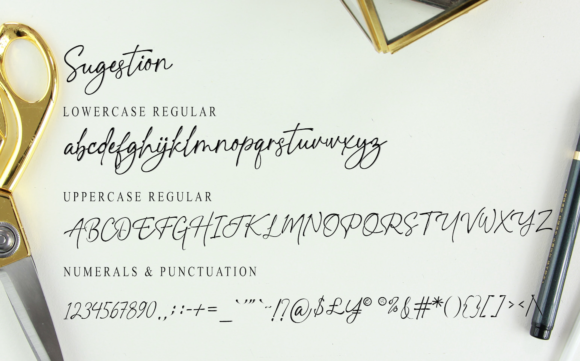 Sugestion
LOWERCASE REGULAR
abcdefghijklmnopqrstuvwxyz
UPPERCASE REGULAR
ABCDEFGHIJKLMNOPQRSTUVWXYZ
NUMERALS & PUNCTUATION
1234567890.,;:-+=_`'"“~!?@$£¥©®%&#*(){}[]><\